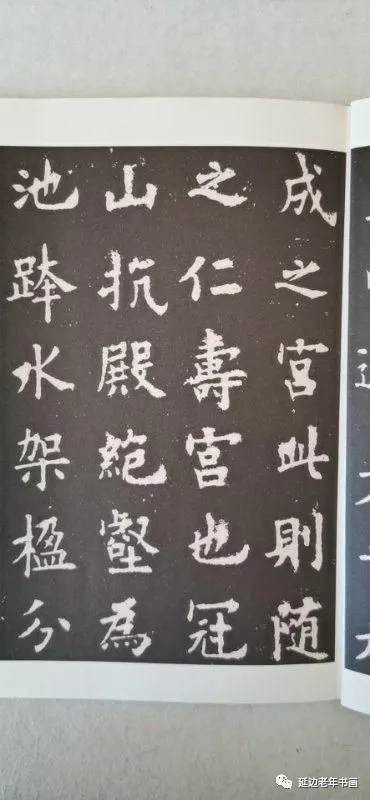 成之宮此則随
之仁壽宮也冠
山抗殿絶壑為
池跨水架楹分
延边老年书画